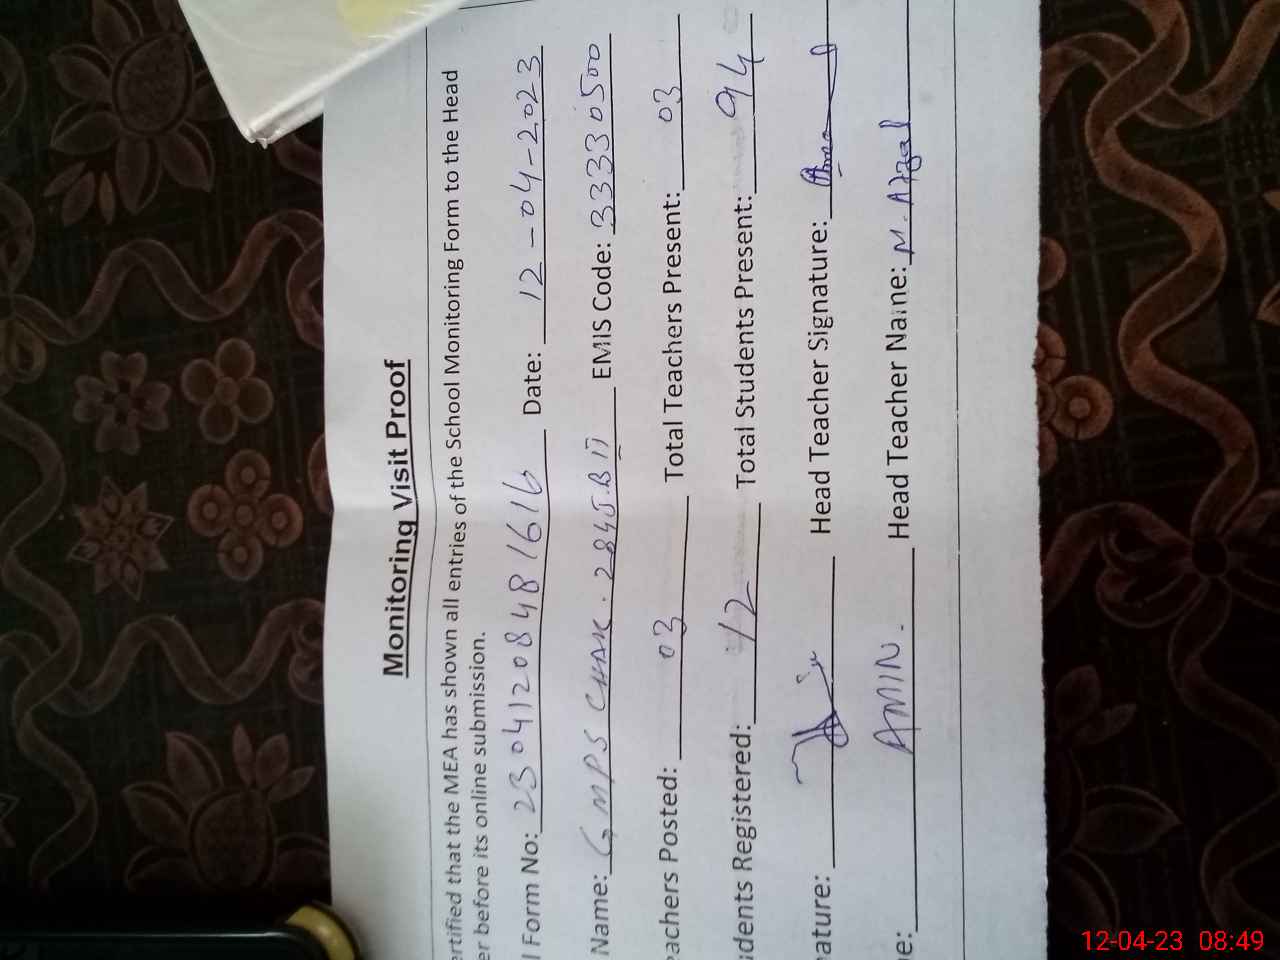 Monitoring Visit Proof
ertified that the MEA has shown all entries of the School Monitoring Form to the Head
er before its online submission.
l Form No: 23041208481616 Date: 12-04-2023
Name: GMPS CHAK. 284J.B II EMIS Code: 33330500
eachers Posted: 03 Total Teachers Present: 03
udents Registered: 12 Total Students Present: 94
nature: Head Teacher Signature:
e: AMIN. Head Teacher Name: M. Afzal
12-04-23 08:49